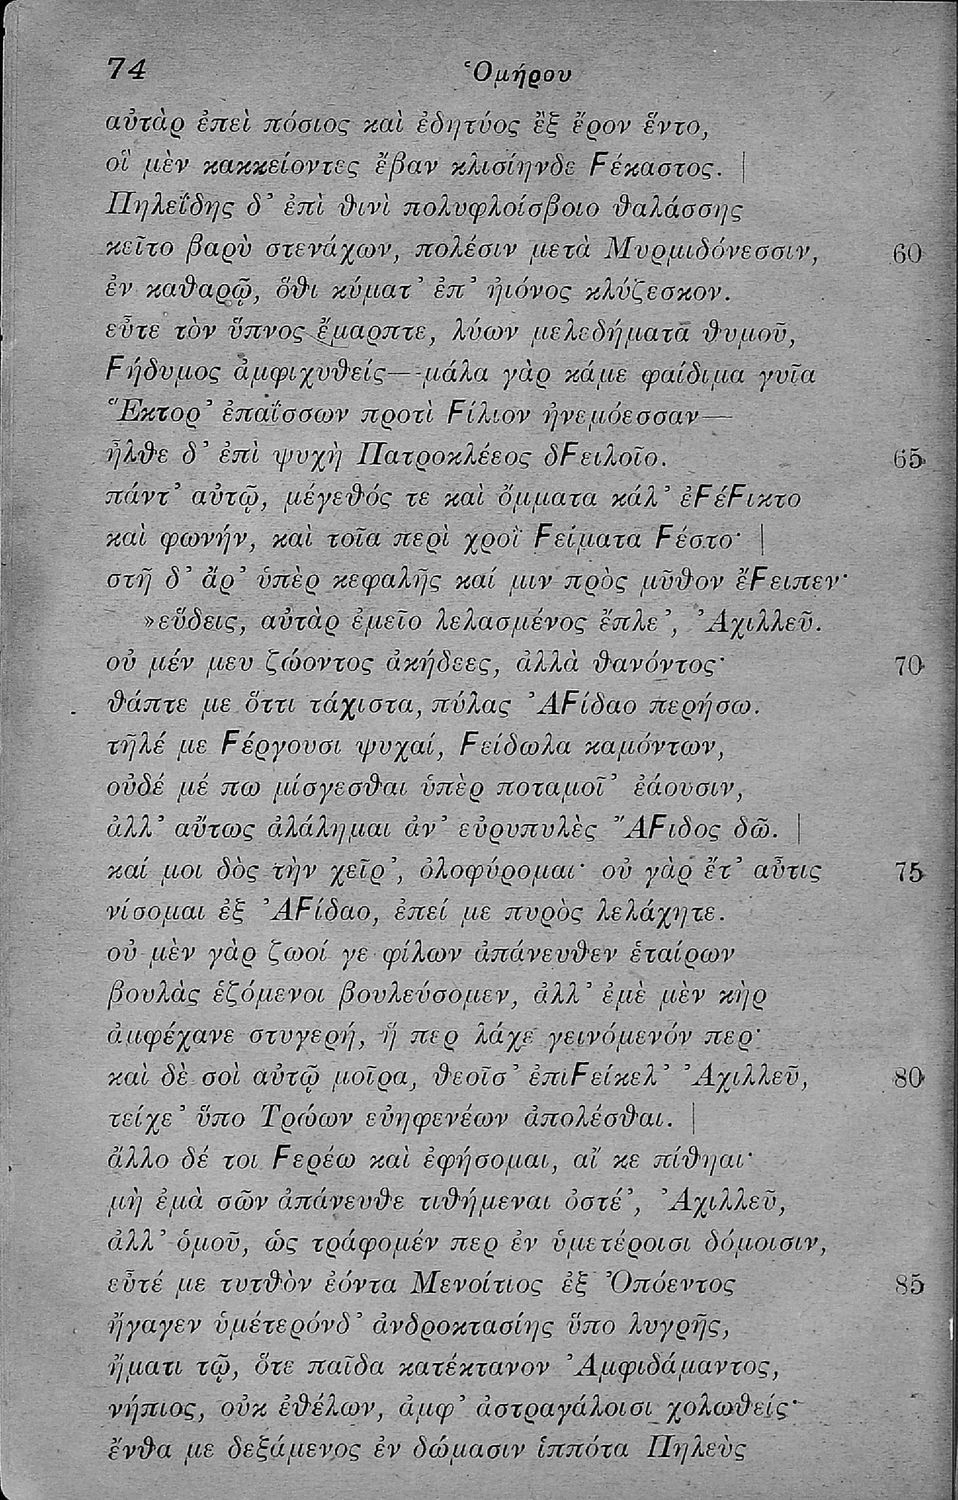 74 Ὁμήρου
αὐτὰρ ἐπεὶ πόσιος καὶ ἐδητύος ἒξ ἔρον ἕντο,
οἳ μὲν κακκείοντες ἔβαν κλισίηνδε Ϝέκαστος. |
Πηλεΐδης δ’ ἐπὶ θινὶ πολυφλοίσβοιο θαλάσσης
κεῖτο βαρὺ στενάχων, πολέσιν μετὰ Μυρμιδόνεσσιν, 60
ἐν καθαρῷ, ὅθι κύματ’ ἐπ’ ἠιόνος κλύζεσκον.
εὖτε τὸν ὕπνος ἔμαρπτε, λύων μελεδήματα θυμοῦ,
Ϝήδυμος ἀμφιχυθείς—μάλα γὰρ κάμε φαίδιμα γυῖα
Ἕκτορ’ ἐπαΐσσων προτὶ Ϝίλιον ἠνεμόεσσαν—
ἦλθε δ’ ἐπὶ ψυχὴ Πατροκλέεος δϜειλοῖο. 65
πάντ’ αὐτῷ, μέγεθός τε καὶ ὄμματα κάλ’ ἐϜέϜικτο
καὶ φωνήν, καὶ τοῖα περὶ χροῒ Ϝείματα Ϝέστο· |
στῆ δ’ ἄρ’ ὑπὲρ κεφαλῆς καί μιν πρὸς μῦθον ἔϜειπεν·
»εὕδεις, αὐτὰρ ἐμεῖο λελασμένος ἔπλε’, Ἀχιλλεῦ.
οὐ μέν μευ ζώοντος ἀκήδεες, ἀλλὰ θανόντος· 70
θάπτε με ὅττι τάχιστα, πύλας ἈϜίδαο περήσω.
τῆλέ με Ϝέργουσι ψυχαί, Ϝείδωλα καμόντων,
οὐδέ μέ πω μίσγεσθαι ὑπὲρ ποταμοῖ’ ἐάουσιν,
ἀλλ’ αὔτως ἀλάλημαι ἀν’ εὐρυπυλὲς ἌϜιδος δῶ. |
καί μοι δὸς τὴν χεῖρ’, ὀλοφύρομαι· οὐ γὰρ ἔτ’ αὖτις 75
νίσομαι ἐξ ἈϜίδαο, ἐπεί με πυρὸς λελάχητε.
οὐ μὲν γὰρ ζωοί γε φίλων ἀπάνευθεν ἑταίρων
βουλὰς ἑζόμενοι βουλεύσομεν, ἀλλ’ ἐμὲ μὲν κὴρ
ἀμφέχανε στυγερή, ἥ περ λάχε γεινόμενόν περ·
καὶ δὲ σοὶ αὐτῷ μοῖρα, θεοῖσ’ ἐπιϜείκελ’ Ἀχιλλεῦ, 80
τείχε’ ὕπο Τρώων εὐηφενέων ἀπολέσθαι. |
ἄλλο δέ τοι Ϝερέω καὶ ἐφήσομαι, αἴ κε πίθηαι·
μὴ ἐμὰ σῶν ἀπάνευθε τιθήμεναι ὀστέ’, Ἀχιλλεῦ,
ἀλλ’ ὁμοῦ, ὡς τράφομέν περ ἐν ὑμετέροισι δόμοισιν,
εὖτέ με τυτθὸν ἐόντα Μενοίτιος ἐξ Ὀπόεντος 85
ἤγαγεν ὑμέτερόνδ’ ἀνδροκτασίης ὕπο λυγρῆς,
ἤματι τῷ, ὅτε παῖδα κατέκτανον Ἀμφιδάμαντος,
νήπιος, οὐκ ἐθέλων, ἀμφ’ ἀστραγάλοισι χολωθείς·
ἔνθα με δεξάμενος ἐν δώμασιν ἱππότα Πηλεὺς